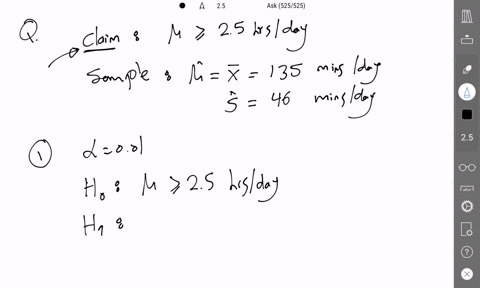 2.5 Ask (525/525)
Q. Claim : μ ⩾ 2.5 hrs/day
Sample : μ̂ = x̄ = 135 mins/day
ŝ = 46 mins/day
① α=0.01
H₀ : μ ⩾ 2.5 hrs/day
H₁ :
2.5